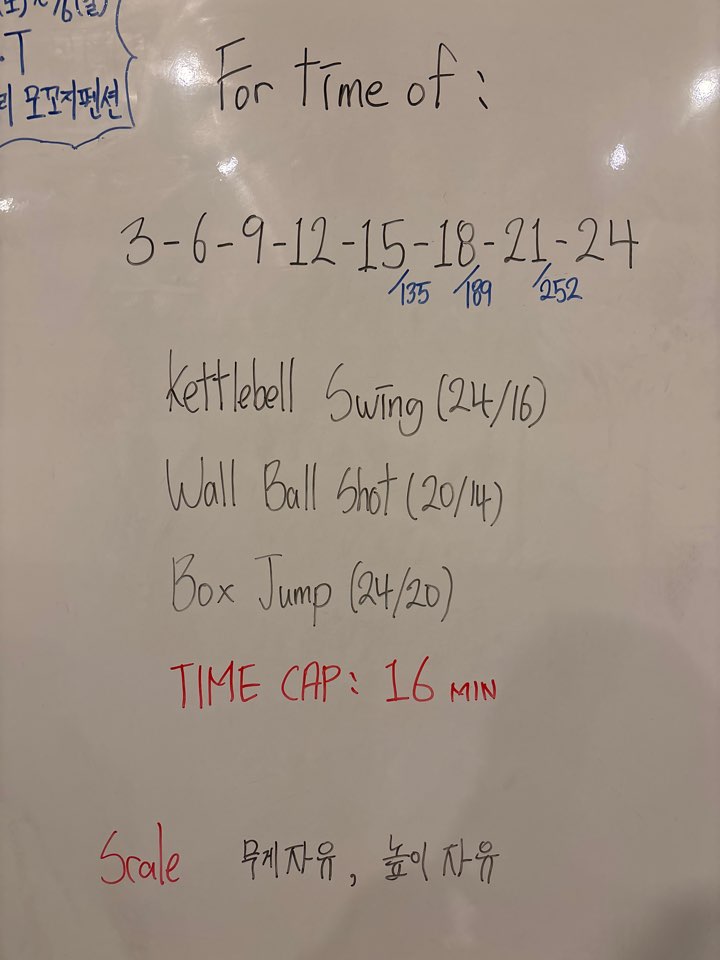 .T
모꼬지펜션
For time of :
3-6-9-12-15-18-21-24
/135 /189 /252
Kettlebell Swing (24/16)
Wall Ball Shot (20/14)
Box Jump (24/20)
TIME CAP: 16 MIN
Scale 무게자유, 높이 자유